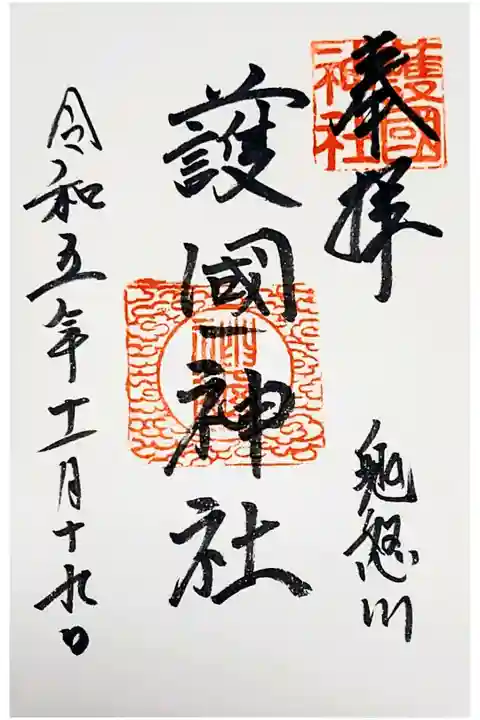 護國
神社
奉拝
鬼怒川
護國神社
令和五年十一月十九日